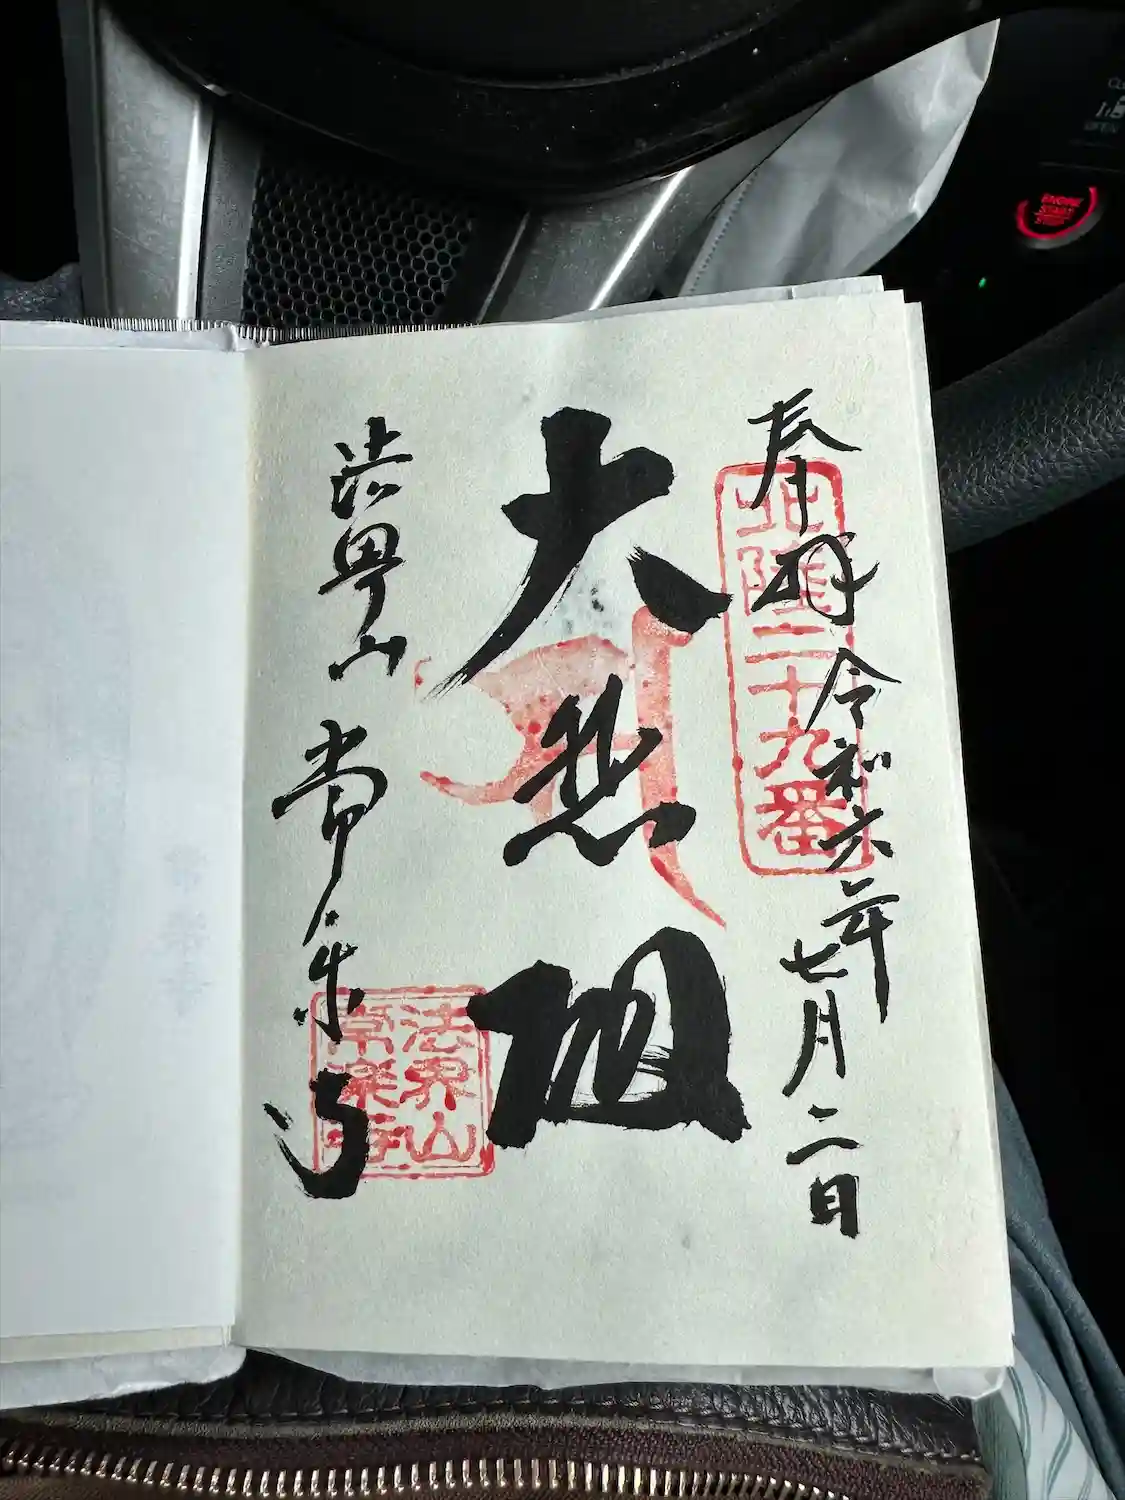 奉拝 令和六年七月二日
北陸二十九番
大悲
法界山 常楽寺
法界山
常楽寺
ENGINE
START
STOP
OPEN